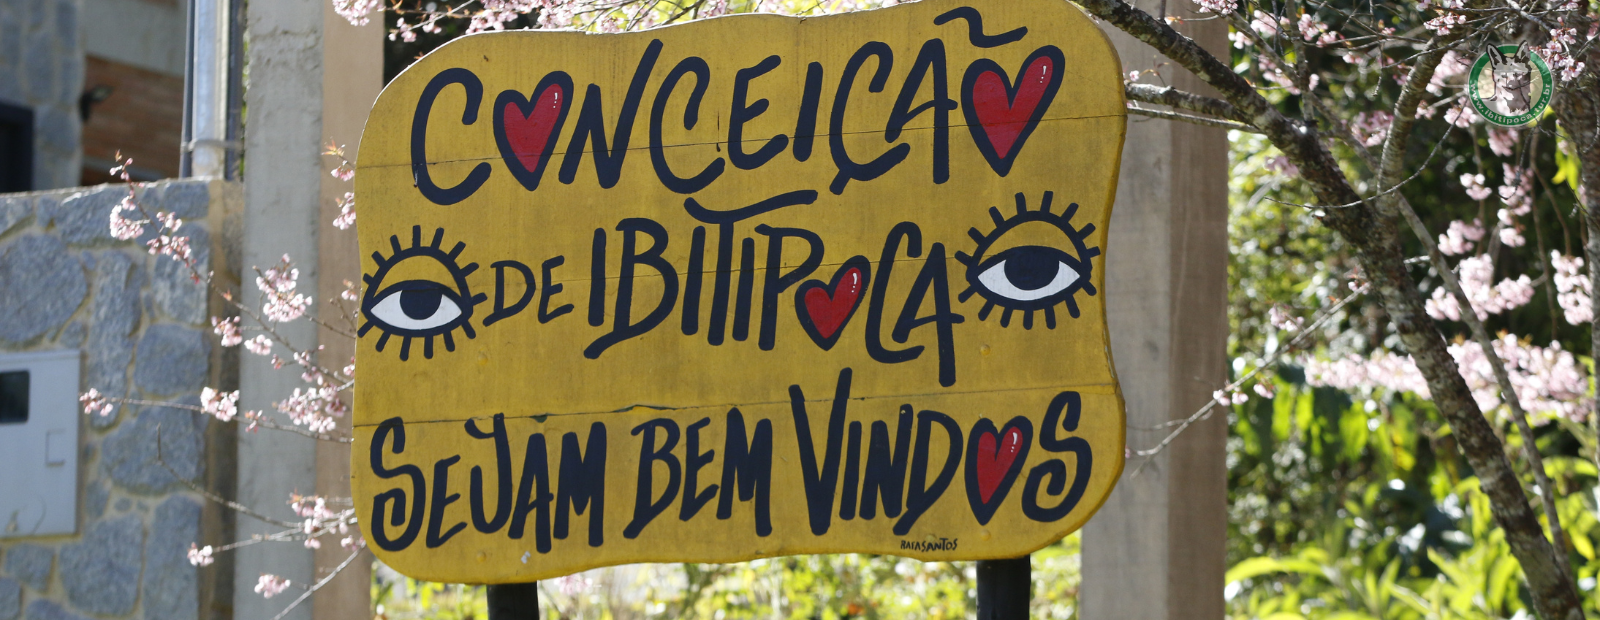 CONCEIÇÃO
DE IBITIPOCA
SEJAM BEM VINDOS
RAFA SANTOS
www.ibitipoca.tur.br